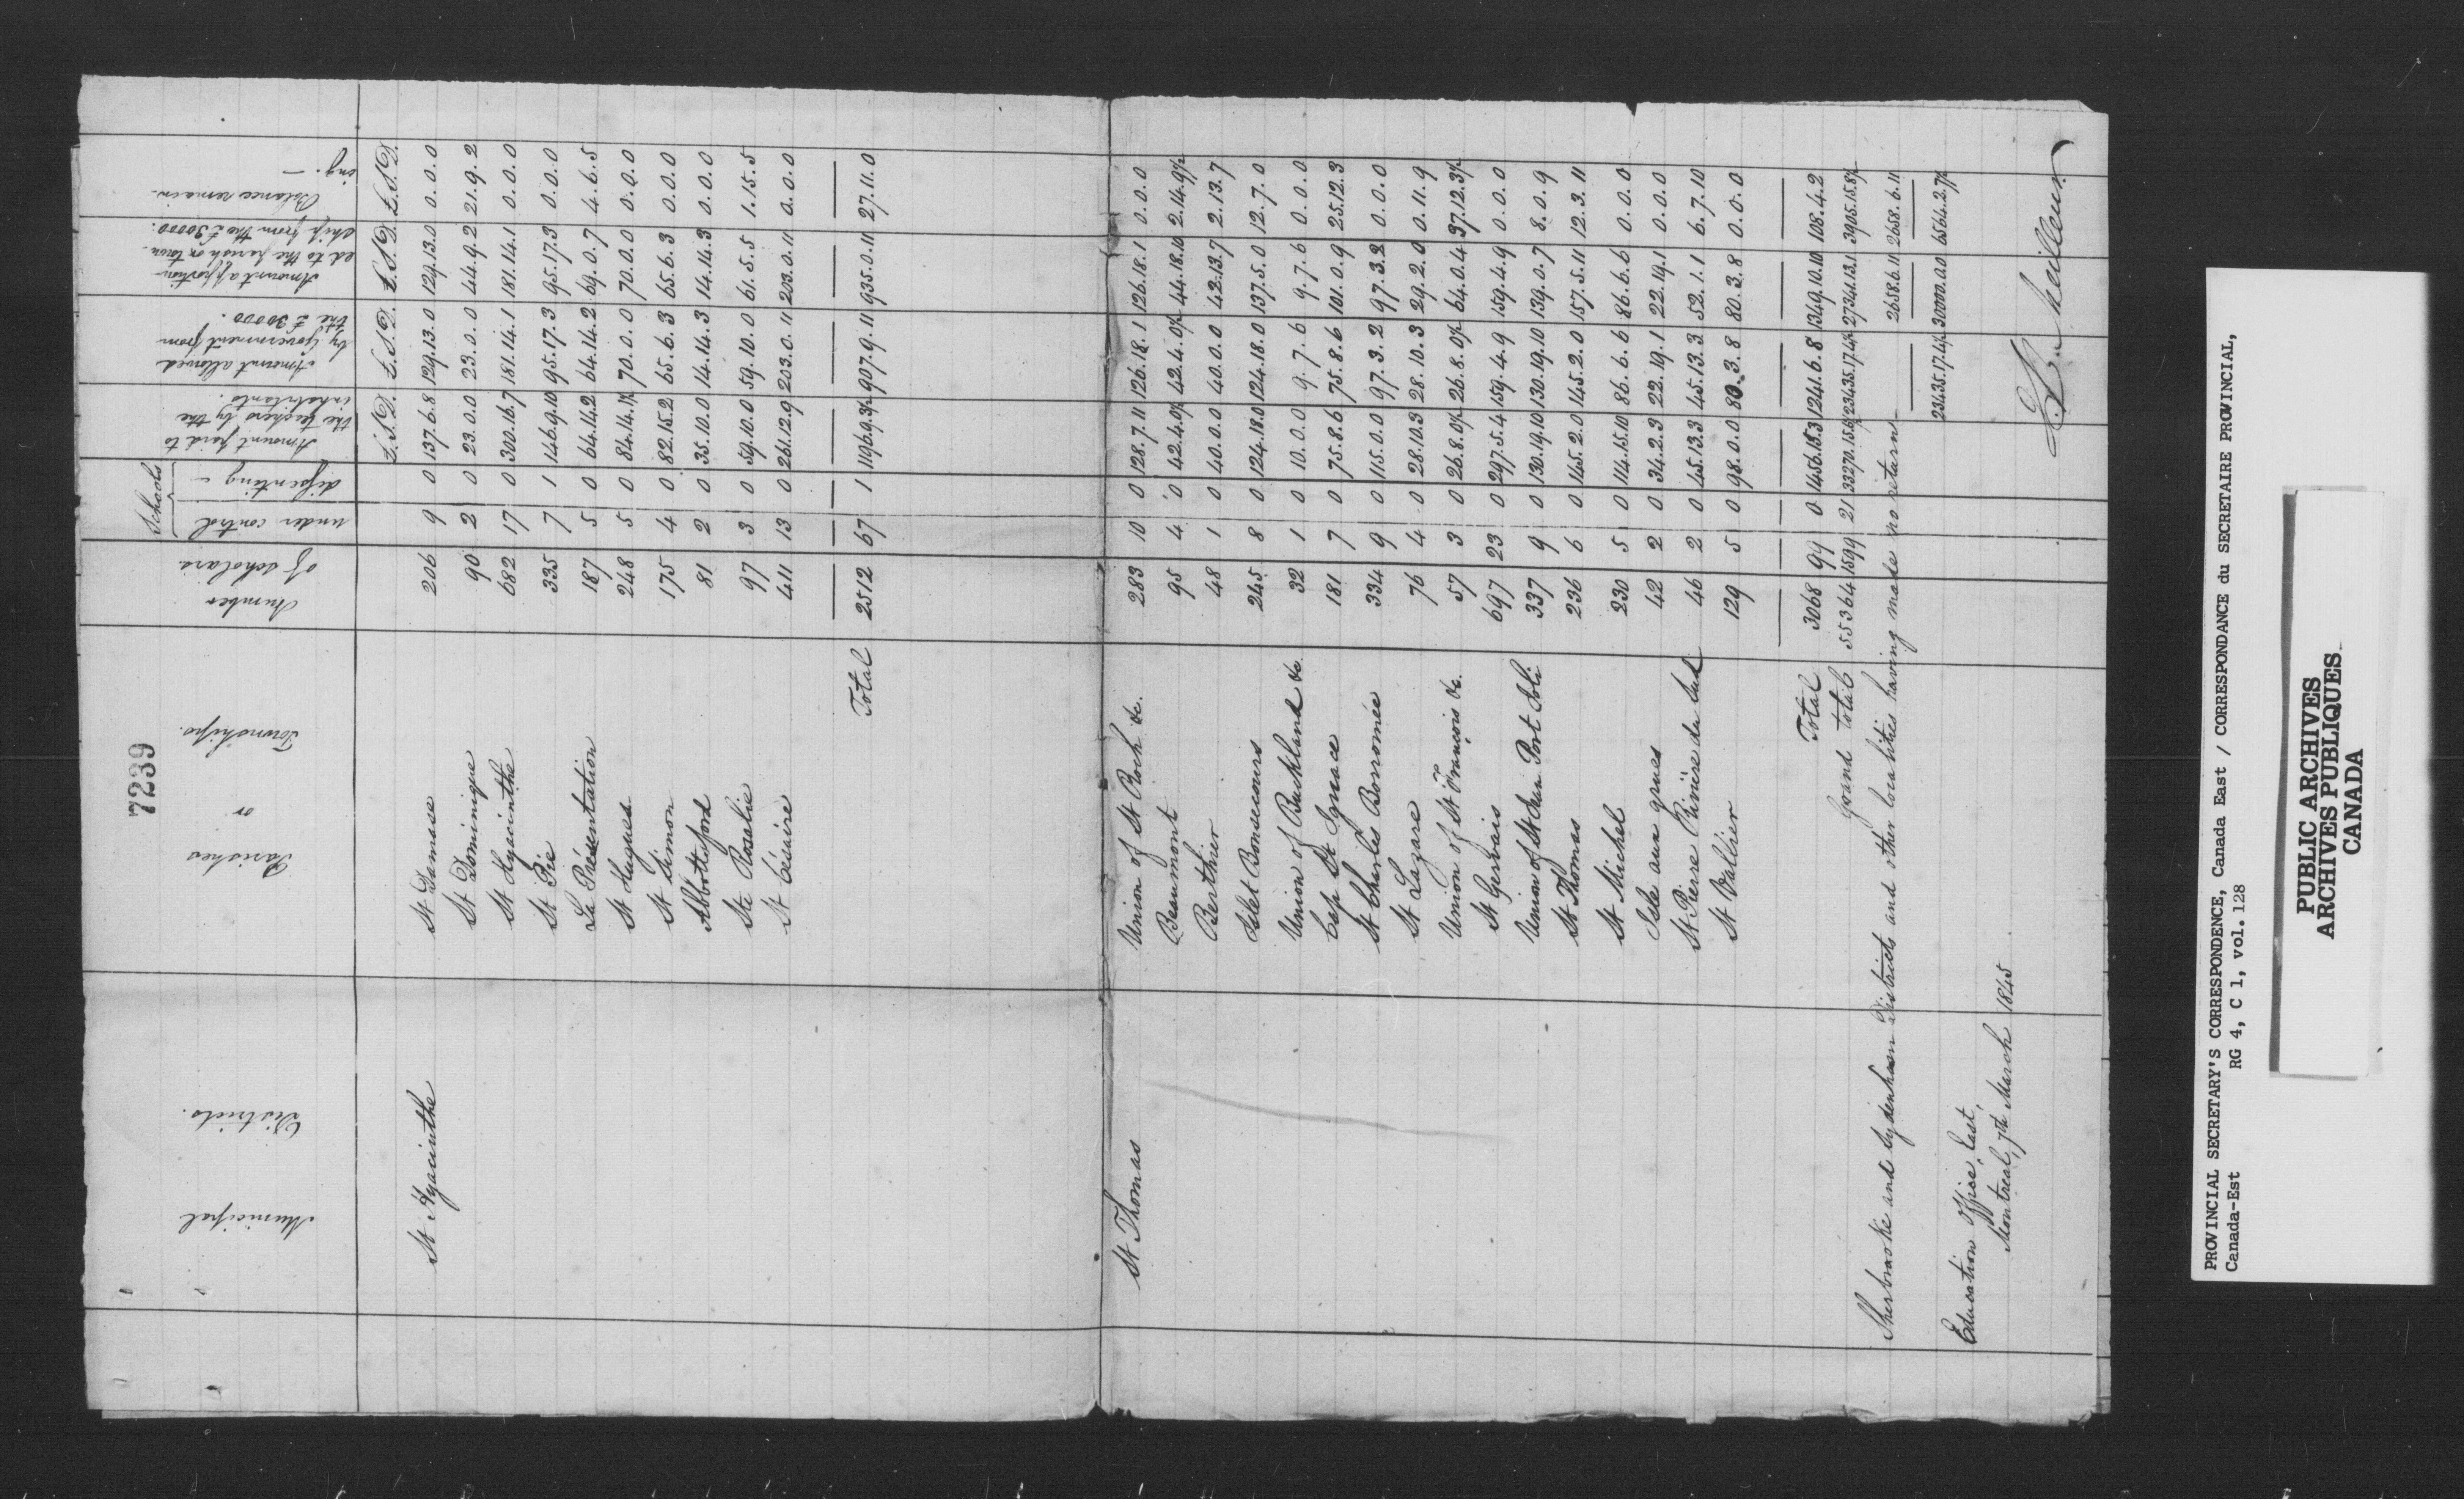 7239
Municipal Districts.
Parishes or Townships.
Number of scholars
Schools
under control
dissenting —
Amount paid to the teachers by the inhabitants.
Amount allowed by Government from the £30000.
Amount apportioned to the parish or township from the £30000.
Balance remaining. —
£.S.D. £.S.D. £.S.D. £.S.D.
St Hyacinthe St Damase 206 9 0 137.6.8 129.13.0 129.13.0 0.0.0
St Dominique 90 2 0 23.0.0 23.0.0 44.9.2 21.9.2
St Hyacinthe 682 17 0 300.16.7 181.14.1 181.14.1 0.0.0
St Pie 335 7 1 146.9.10 95.17.3 95.17.3 0.0.0
La Présentation 187 5 0 64.14.2 64.14.2 69.0.7 4.6.5
St Hugues 248 5 0 84.14.1½ 70.0.0 70.0.0 0.0.0
St Simon 175 4 0 82.15.2 65.6.3 65.6.3 0.0.0
Abbottsford 81 2 0 35.10.0 14.14.3 14.14.3 0.0.0
Ste Rosalie 97 3 0 59.10.0 59.10.0 61.5.5 1.15.5
St Césaire 411 13 0 261.12.9 203.0.11 203.0.11 0.0.0
Total 2512 67 1 1196.9.3½ 907.9.11 935.0.11 27.11.0
St Thomas Union of St Roch &c. 283 10 0 128.7.11 126.18.1 126.18.1 0.0.0
Beaumont 95 4 0 42.4.0½ 42.4.0½ 44.18.10 2.14.9½
Berthier 48 1 0 40.0.0 40.0.0 42.13.7 2.13.7
Islet Bonsecours 245 8 0 124.18.0 124.18.0 137.5.0 12.7.0
Union of Buckland &c. 32 1 0 10.0.0 9.7.6 9.7.6 0.0.0
Cap St Ignace 181 7 0 75.8.6 75.8.6 101.0.9 25.12.3
St Charles Borromée 334 9 0 115.0.0 97.3.2 97.3.2 0.0.0
St Lazare 76 4 0 28.10.3 28.10.3 29.2.0 0.11.9
Union of St François &c. 57 3 0 26.8.0½ 26.8.0½ 64.0.4 37.12.3½
St Gervais 697 23 0 297.5.4 159.4.9 159.4.9 0.0.0
Union of St Jean Port Joli 337 9 0 130.19.10 130.19.10 139.0.7 8.0.9
St Thomas 236 6 0 145.2.0 145.2.0 157.5.11 12.3.11
St Michel 230 5 0 114.15.10 86.6.6 86.6.6 0.0.0
Isle aux grues 42 2 0 34.2.3 22.19.1 22.19.1 0.0.0
St Pierre Rivière du Sud 46 2 0 45.13.3 45.13.3 52.1.1 6.7.10
St Vallier 129 5 0 98.0.0 80.3.8 80.3.8 0.0.0
Total 3068 99 0 1456.15.3 1241.6.8 1349.10.10 108.4.2
Grand total 55364 1599 21 33270.15.6½ 23435.17.4½ 27341.13.1 3905.15.8½
Sherbrooke and Sydenham Districts and other localities having made no return 2658.6.11 2658.6.11
23435.17.4½ 30000.0.0 6564.2.7½
Education Office, East,
Montreal, 7th March 1845
J.B. Meilleur
PROVINCIAL SECRETARY'S CORRESPONDENCE, Canada East / CORRESPONDANCE du SECRETAIRE PROVINCIAL,
Canada-Est RG 4, C 1, vol. 128
PUBLIC ARCHIVES
ARCHIVES PUBLIQUES
CANADA